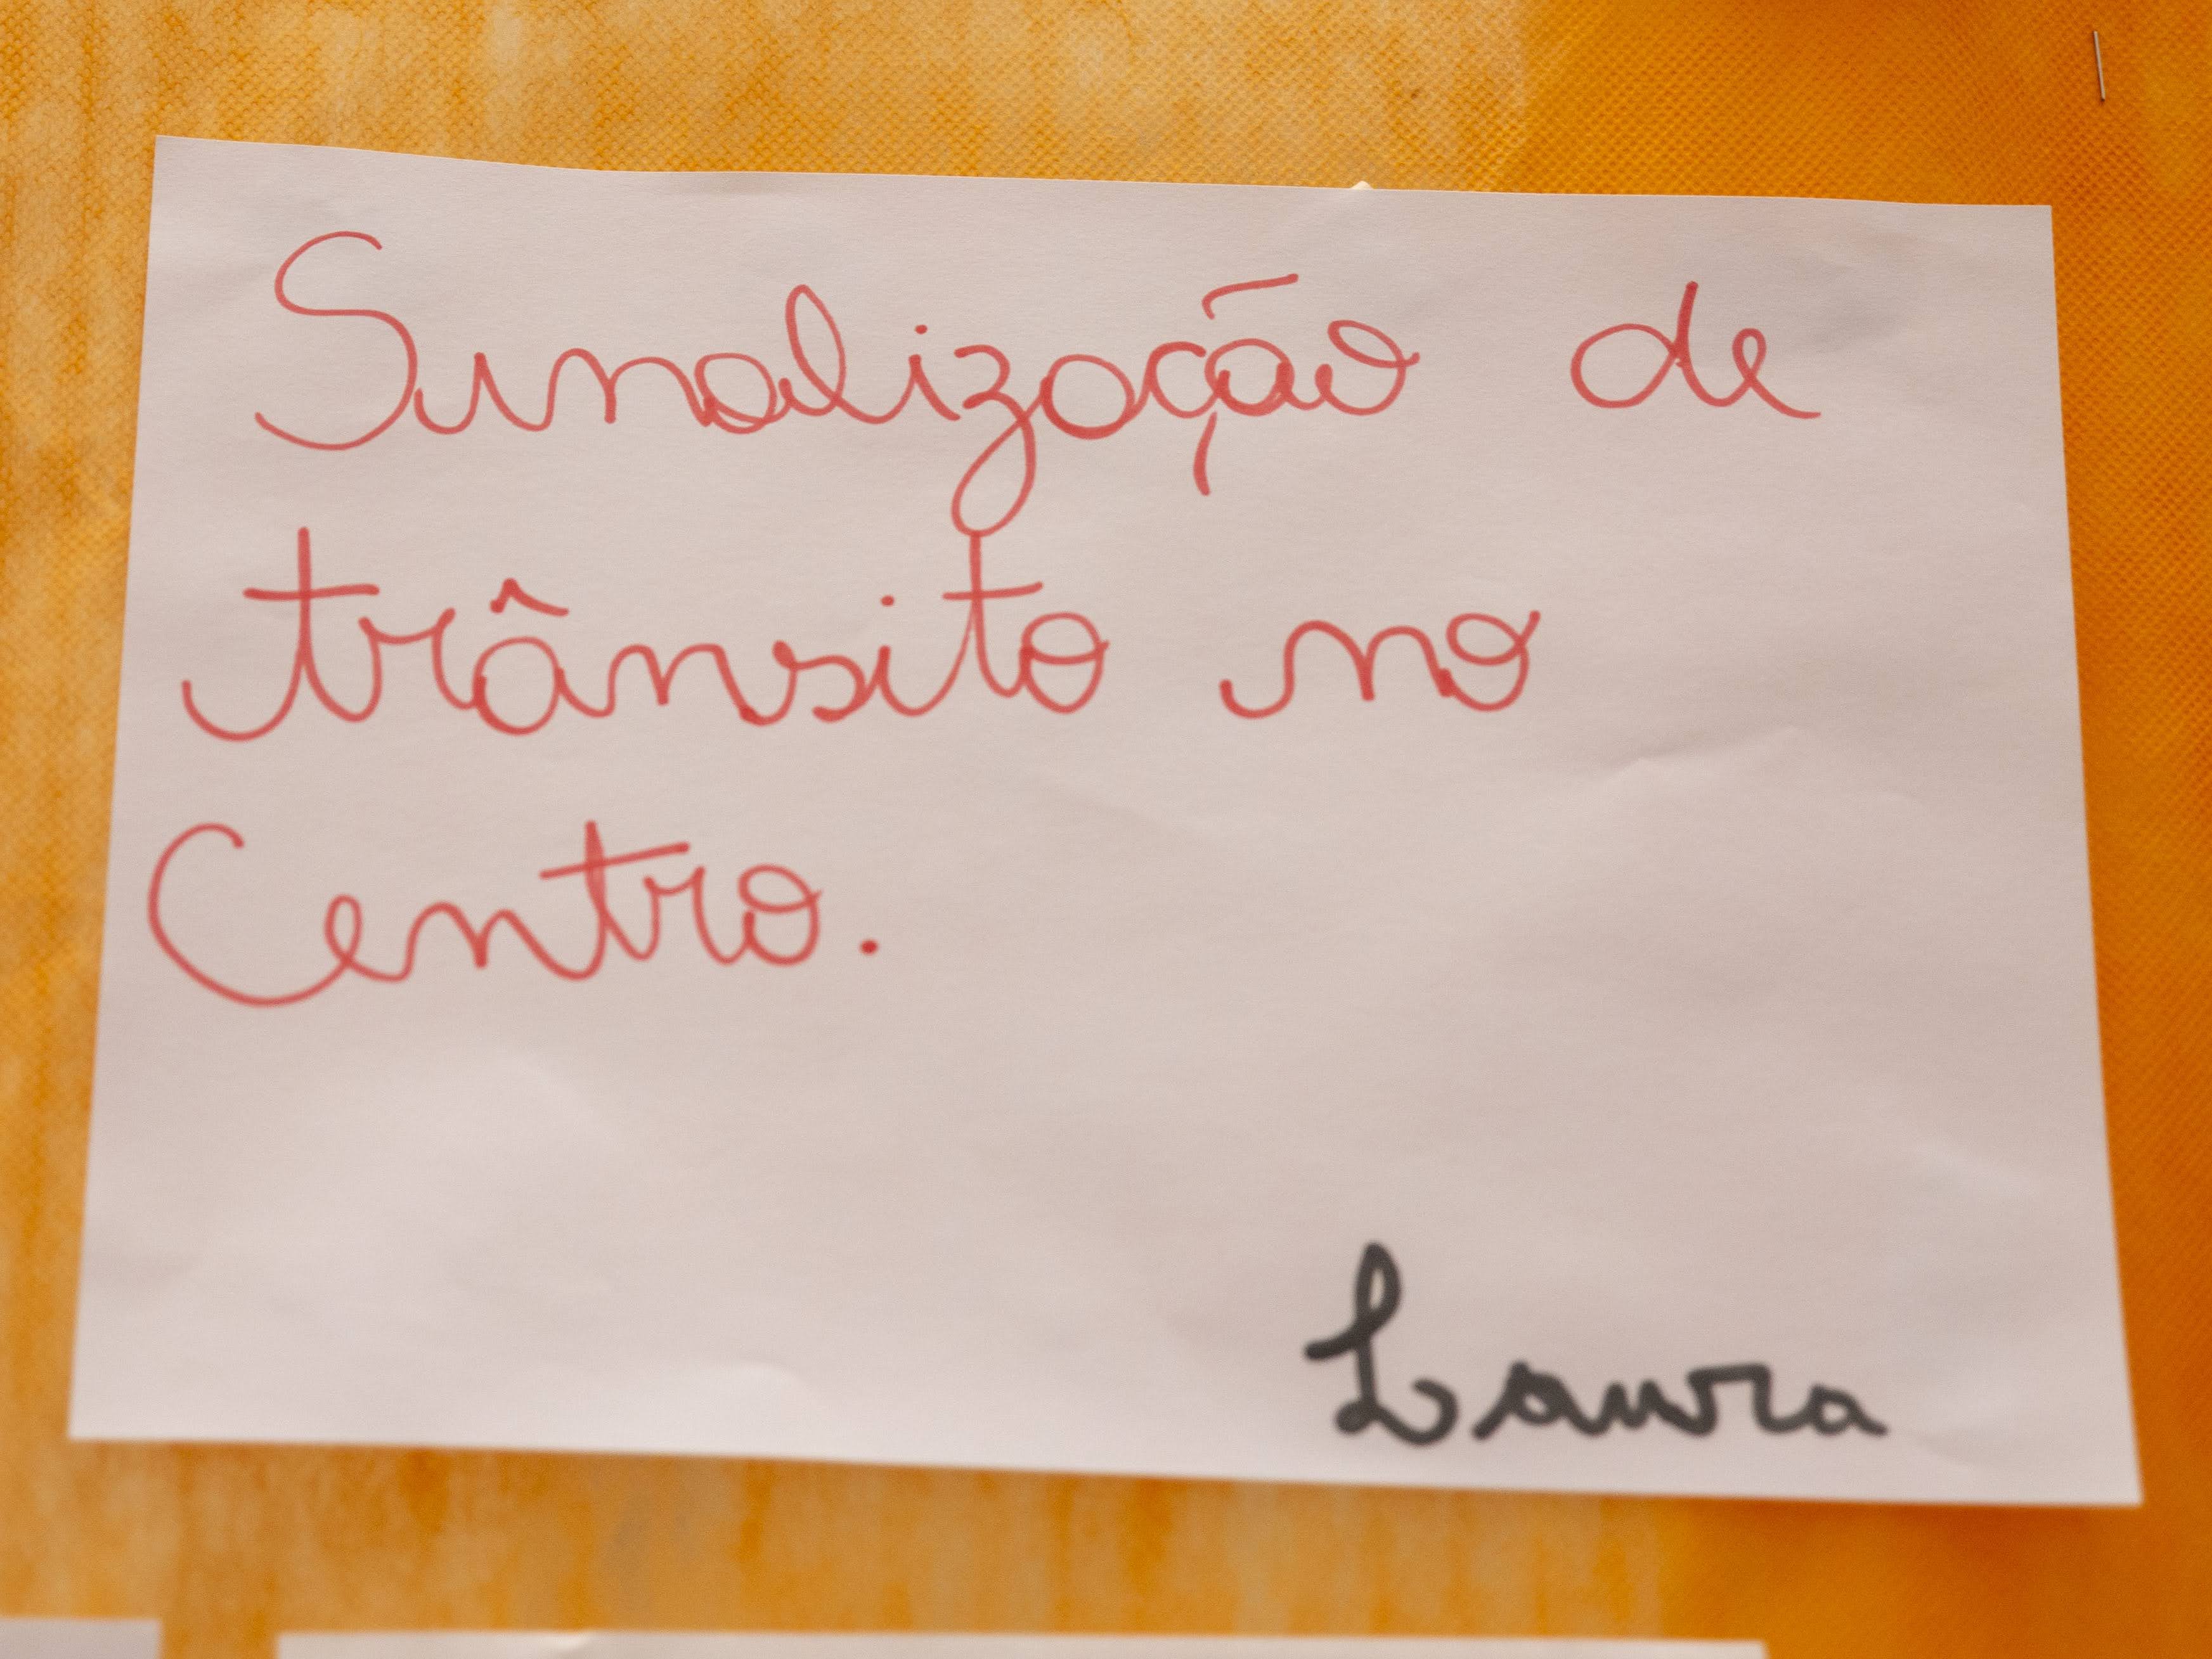 Sinalização de
trânsito no
Centro.
Laura